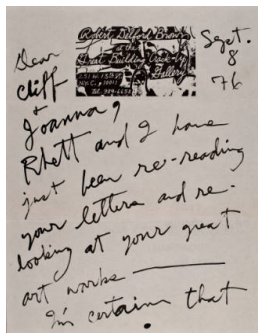 Robert Delford Brown
at the
Great Building Crack-Up
Gallery
251 W. 13th St
NYC, 10011
Tel.
Sept.
8
76
Dear
Cliff
+
Joanna,
Rhett and I have
just been re-reading
your letters and re-
looking at your great
art works ———
I'm certain that